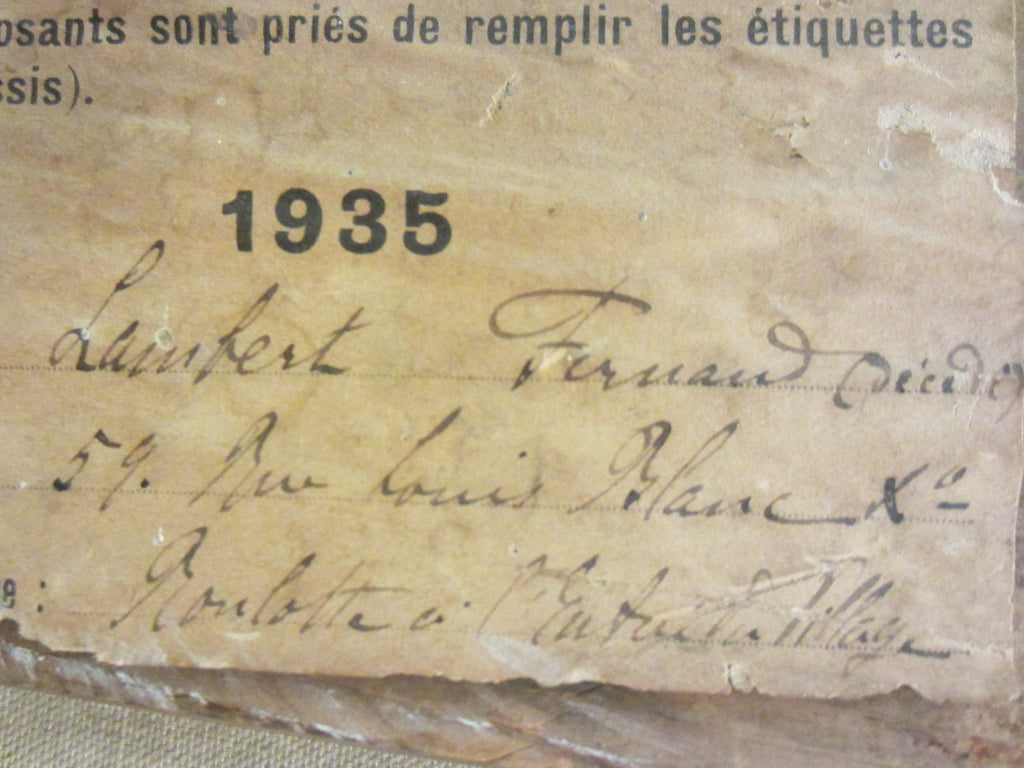 osants sont priés de remplir les étiquettes
ssis).
1935
Lambert Fernand (décédé)
59. Rue Louis Blanc Xº
e : Roulotte à l'Entrée du Village